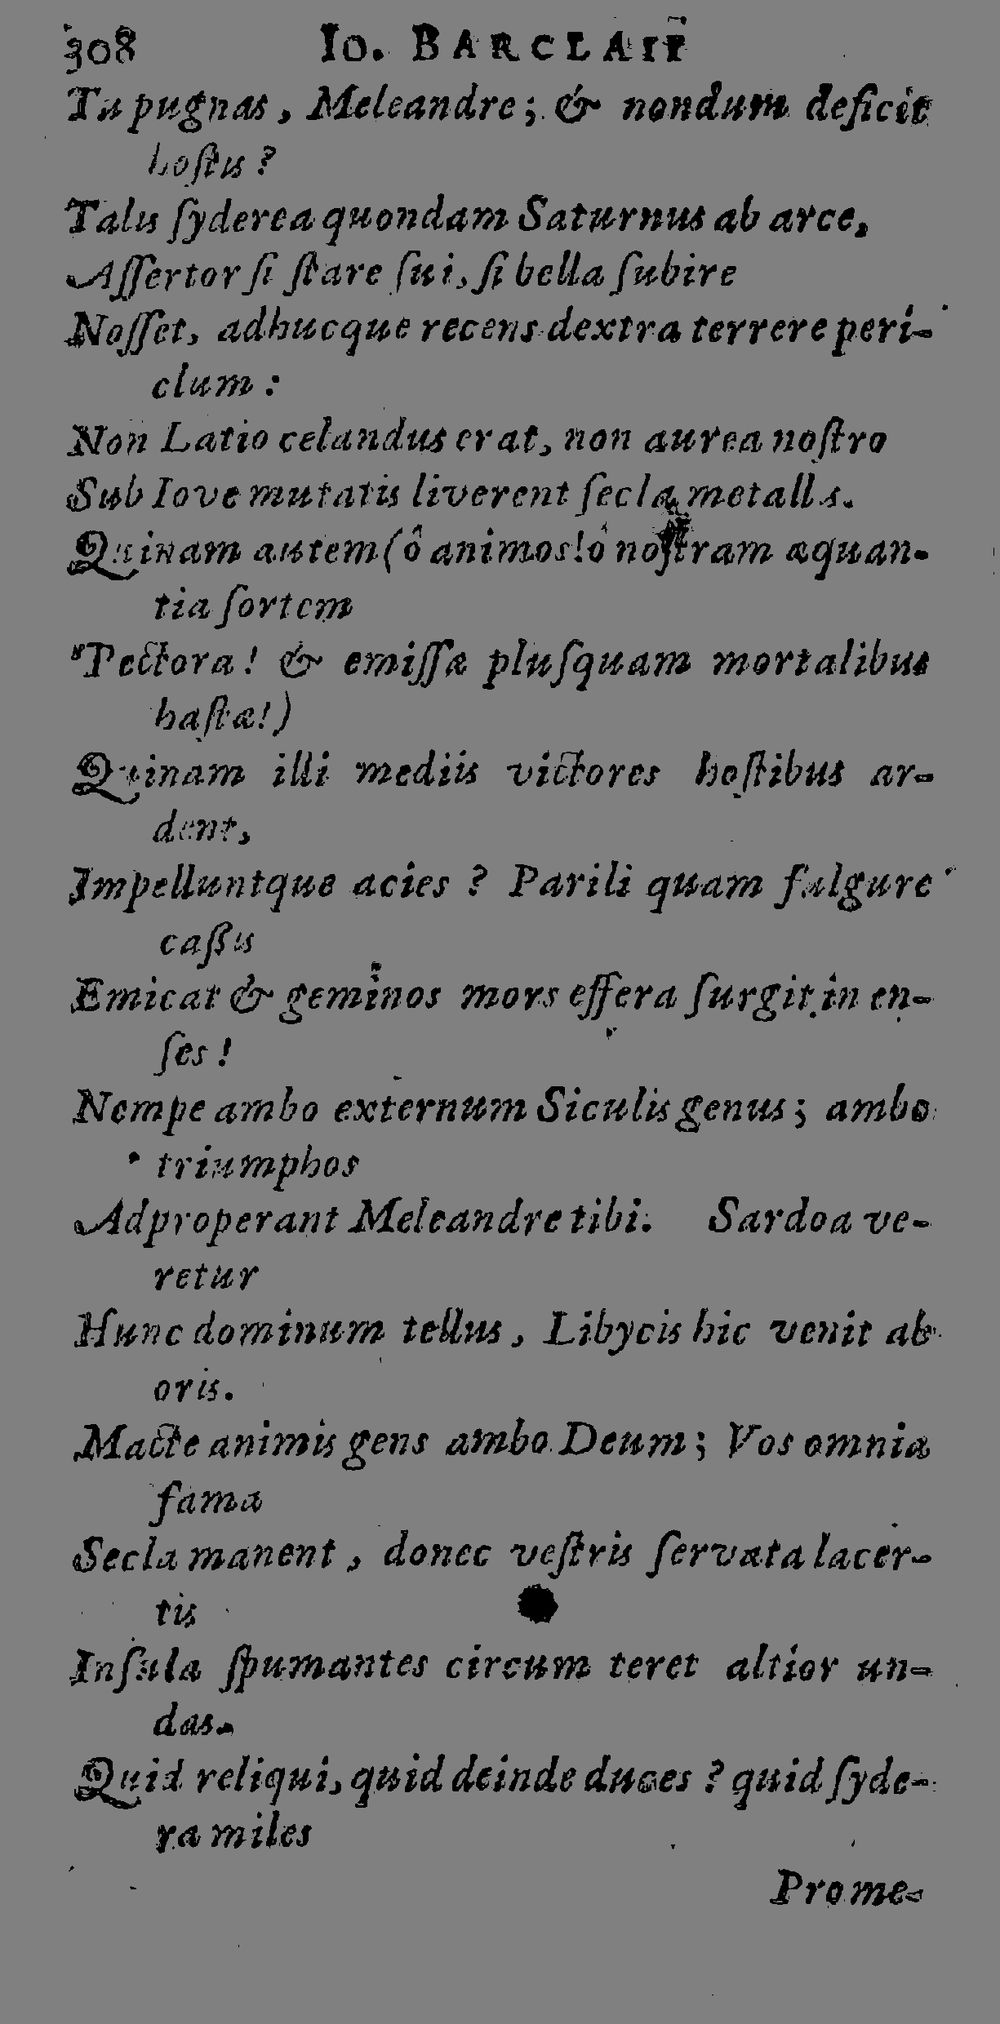 308 Io. BARCLAII
Tu pugnas, Meleandre; & nondum deficit
hostis?
Talis ſyderea quondam Saturnus ab arce,
Aſſertor ſi ſtare ſui, ſi bella ſubire
Noſſet, adhucque recens dextra terrere peri-
clum:
Non Latio celandus erat, non aurea noſtro
Sub Iove mutatis liverent ſecla metallis.
Quinam autem (ô animos! ô noſtram æquan-
tia ſortem
Pectora! & emiſſæ pluſquam mortalibus
haſtæ!)
Quinam illi mediis victores hoſtibus ar-
dent,
Impelluntque acies? Parili quam fulgure
caßis
Emicat & geminos mors effera ſurgit in en-
ſes!
Nempe ambo externum Siculis genus; ambo
triumphos
Adproperant Meleandre tibi. Sardoa ve-
retur
Hunc dominum tellus, Libycis hic venit ab
oris.
Macte animis gens ambo Deum; Vos omnia
fama
Secla manent, donec veſtris ſervata lacer-
tis
Inſula ſpumantes circum teret altior un-
das.
Quid reliqui, quid deinde duces? quid ſyde-
ra miles
Prome-